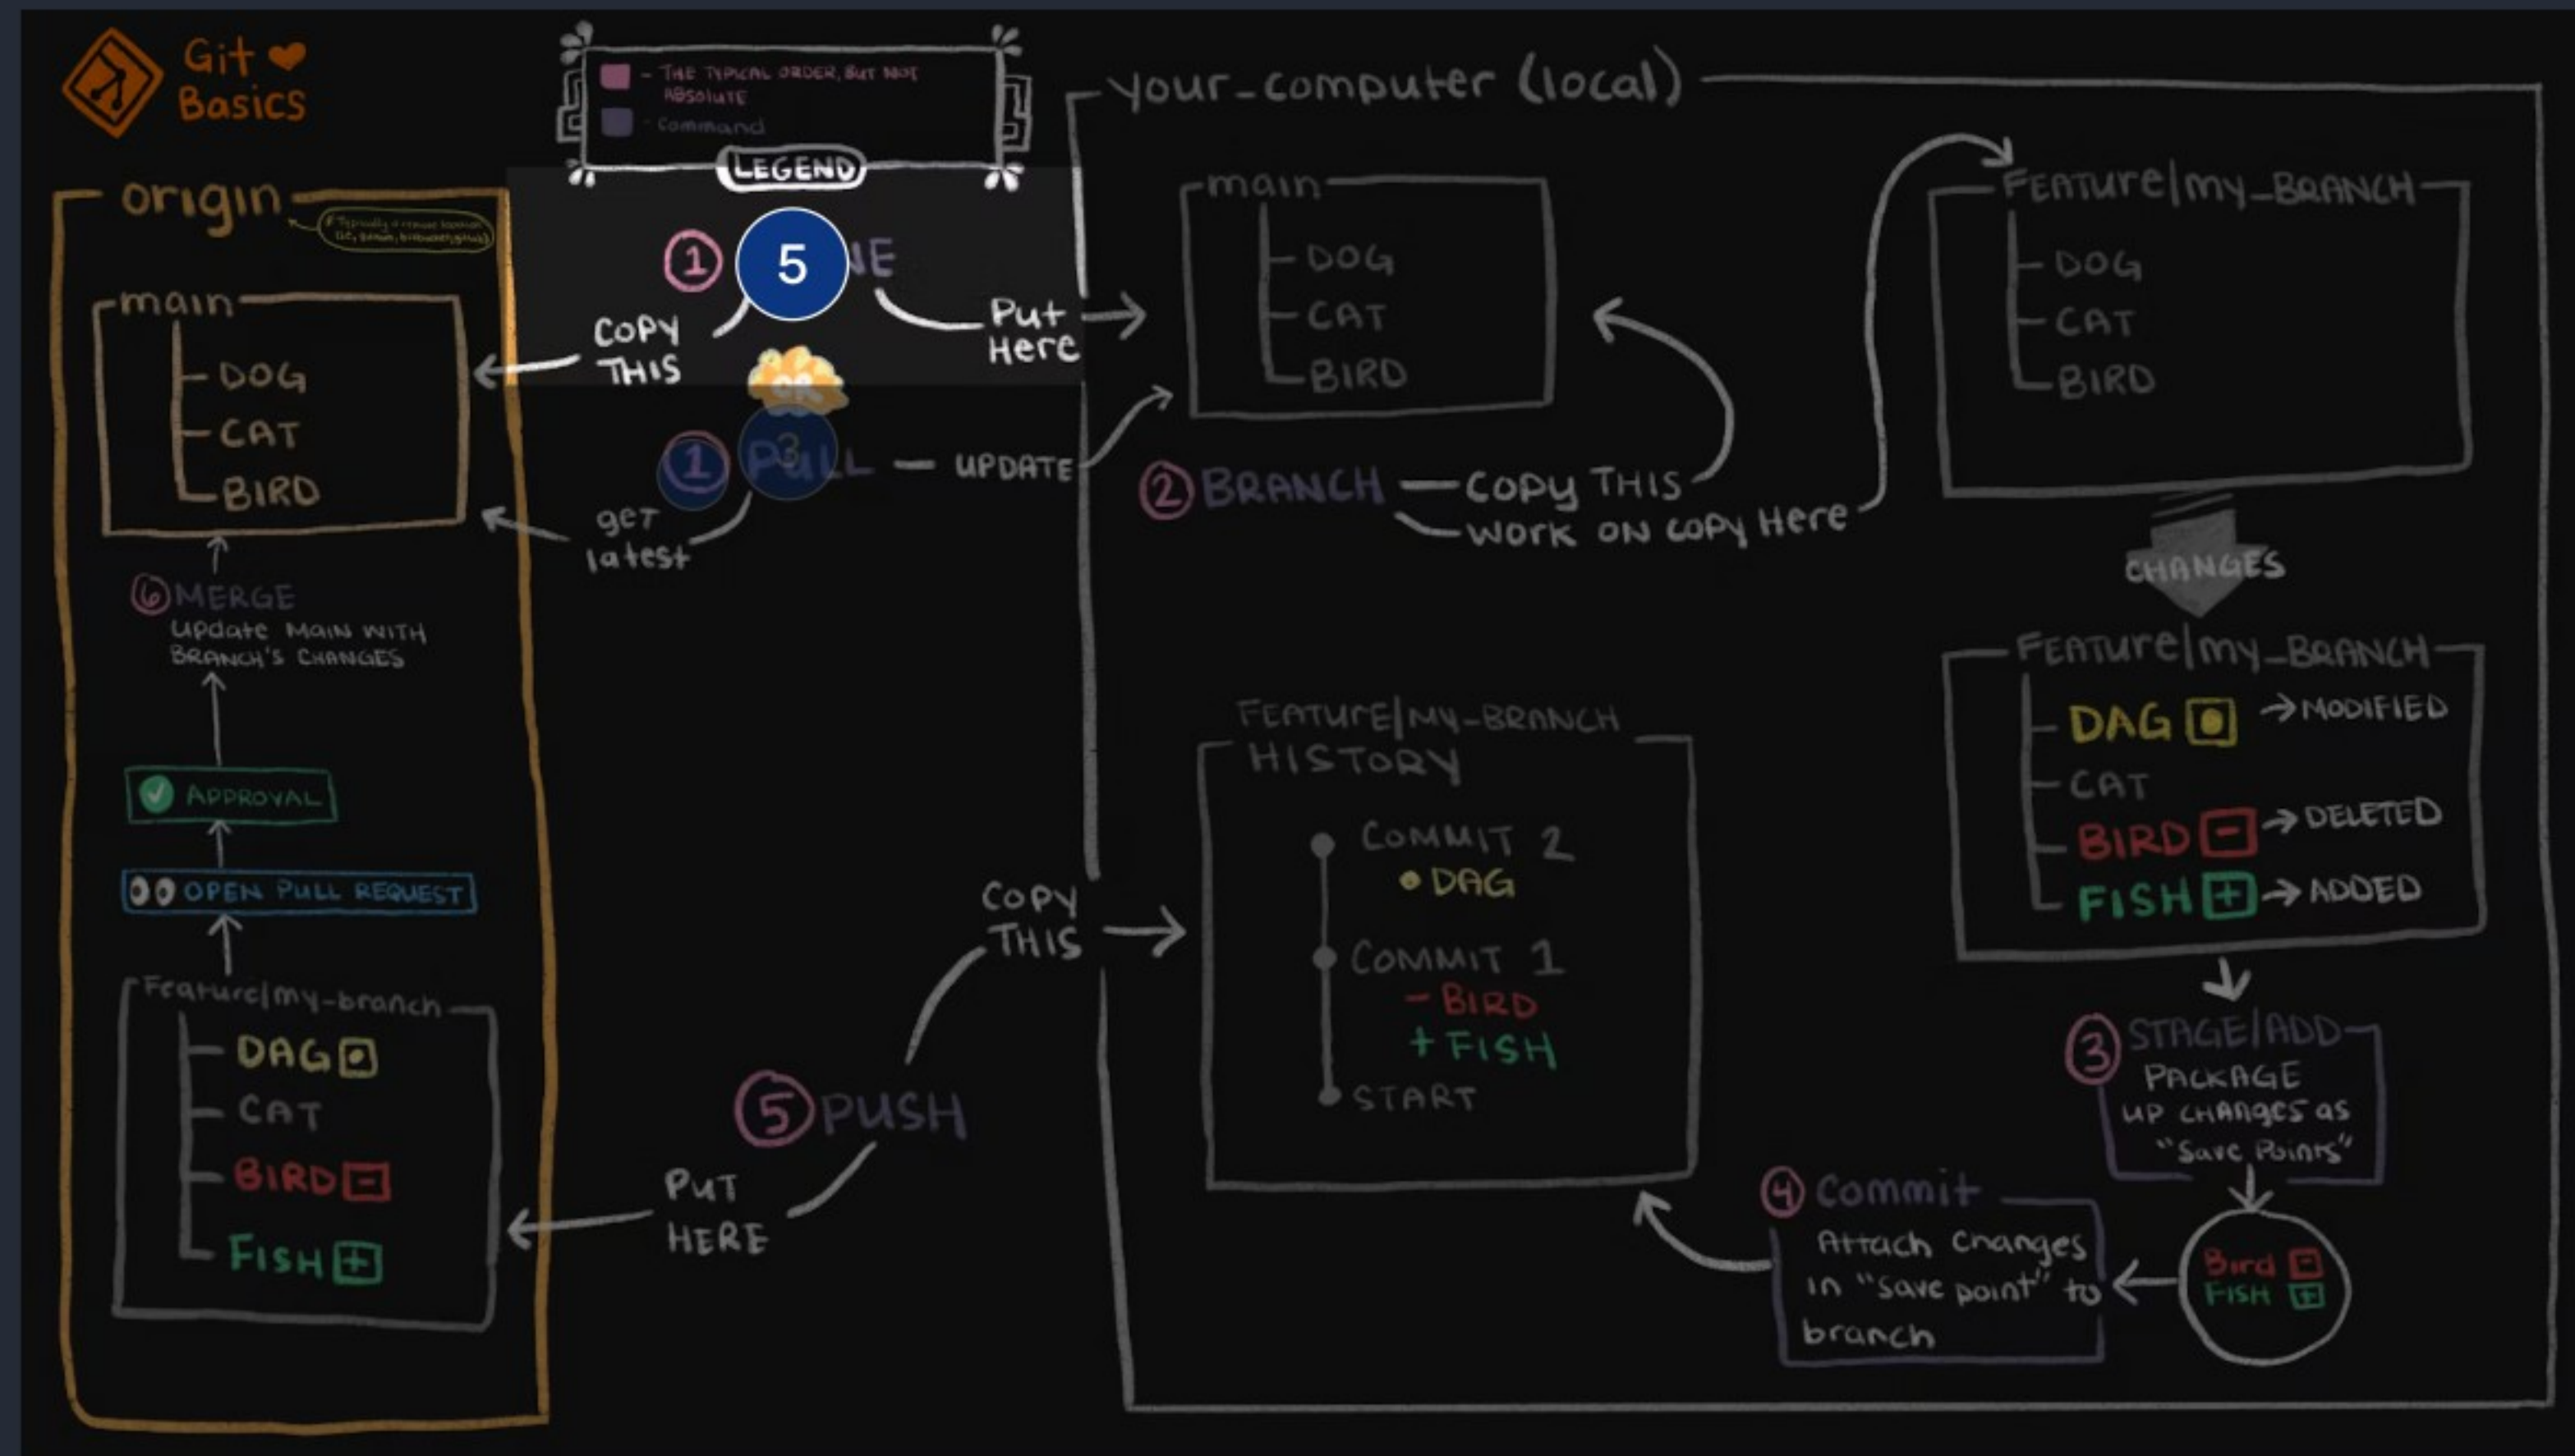 Git
Basics
- THE TYPICAL ORDER, BUT NOT
ABSOLUTE
- Command
LEGEND
origin
main
DOG
CAT
BIRD
1
5
NE
COPY
THIS
Put
Here
OR
1
3
PULL
UPDATE
get
latest
6 MERGE
Update MAIN WITH
BRANCH'S CHANGES
APPROVAL
OPEN PULL REQUEST
Feature/my-branch
DAG
CAT
BIRD -
FISH +
5 PUSH
COPY
THIS
PUT
HERE
your_computer (local)
main
DOG
CAT
BIRD
2 BRANCH
COPY THIS
WORK ON COPY Here
FEATURE/my_BRANCH
DOG
CAT
BIRD
CHANGES
FEATURE/my_BRANCH
DAG → MODIFIED
CAT
BIRD - → DELETED
FISH + → ADDED
3 STAGE/ADD
PACKAGE
UP CHANGES as
"Save Points"
Bird -
FISH +
4 Commit
Attach Changes
in "save point" to
branch
FEATURE/MY-BRANCH
HISTORY
COMMIT 2
• DAG
COMMIT 1
- BIRD
+ FISH
START